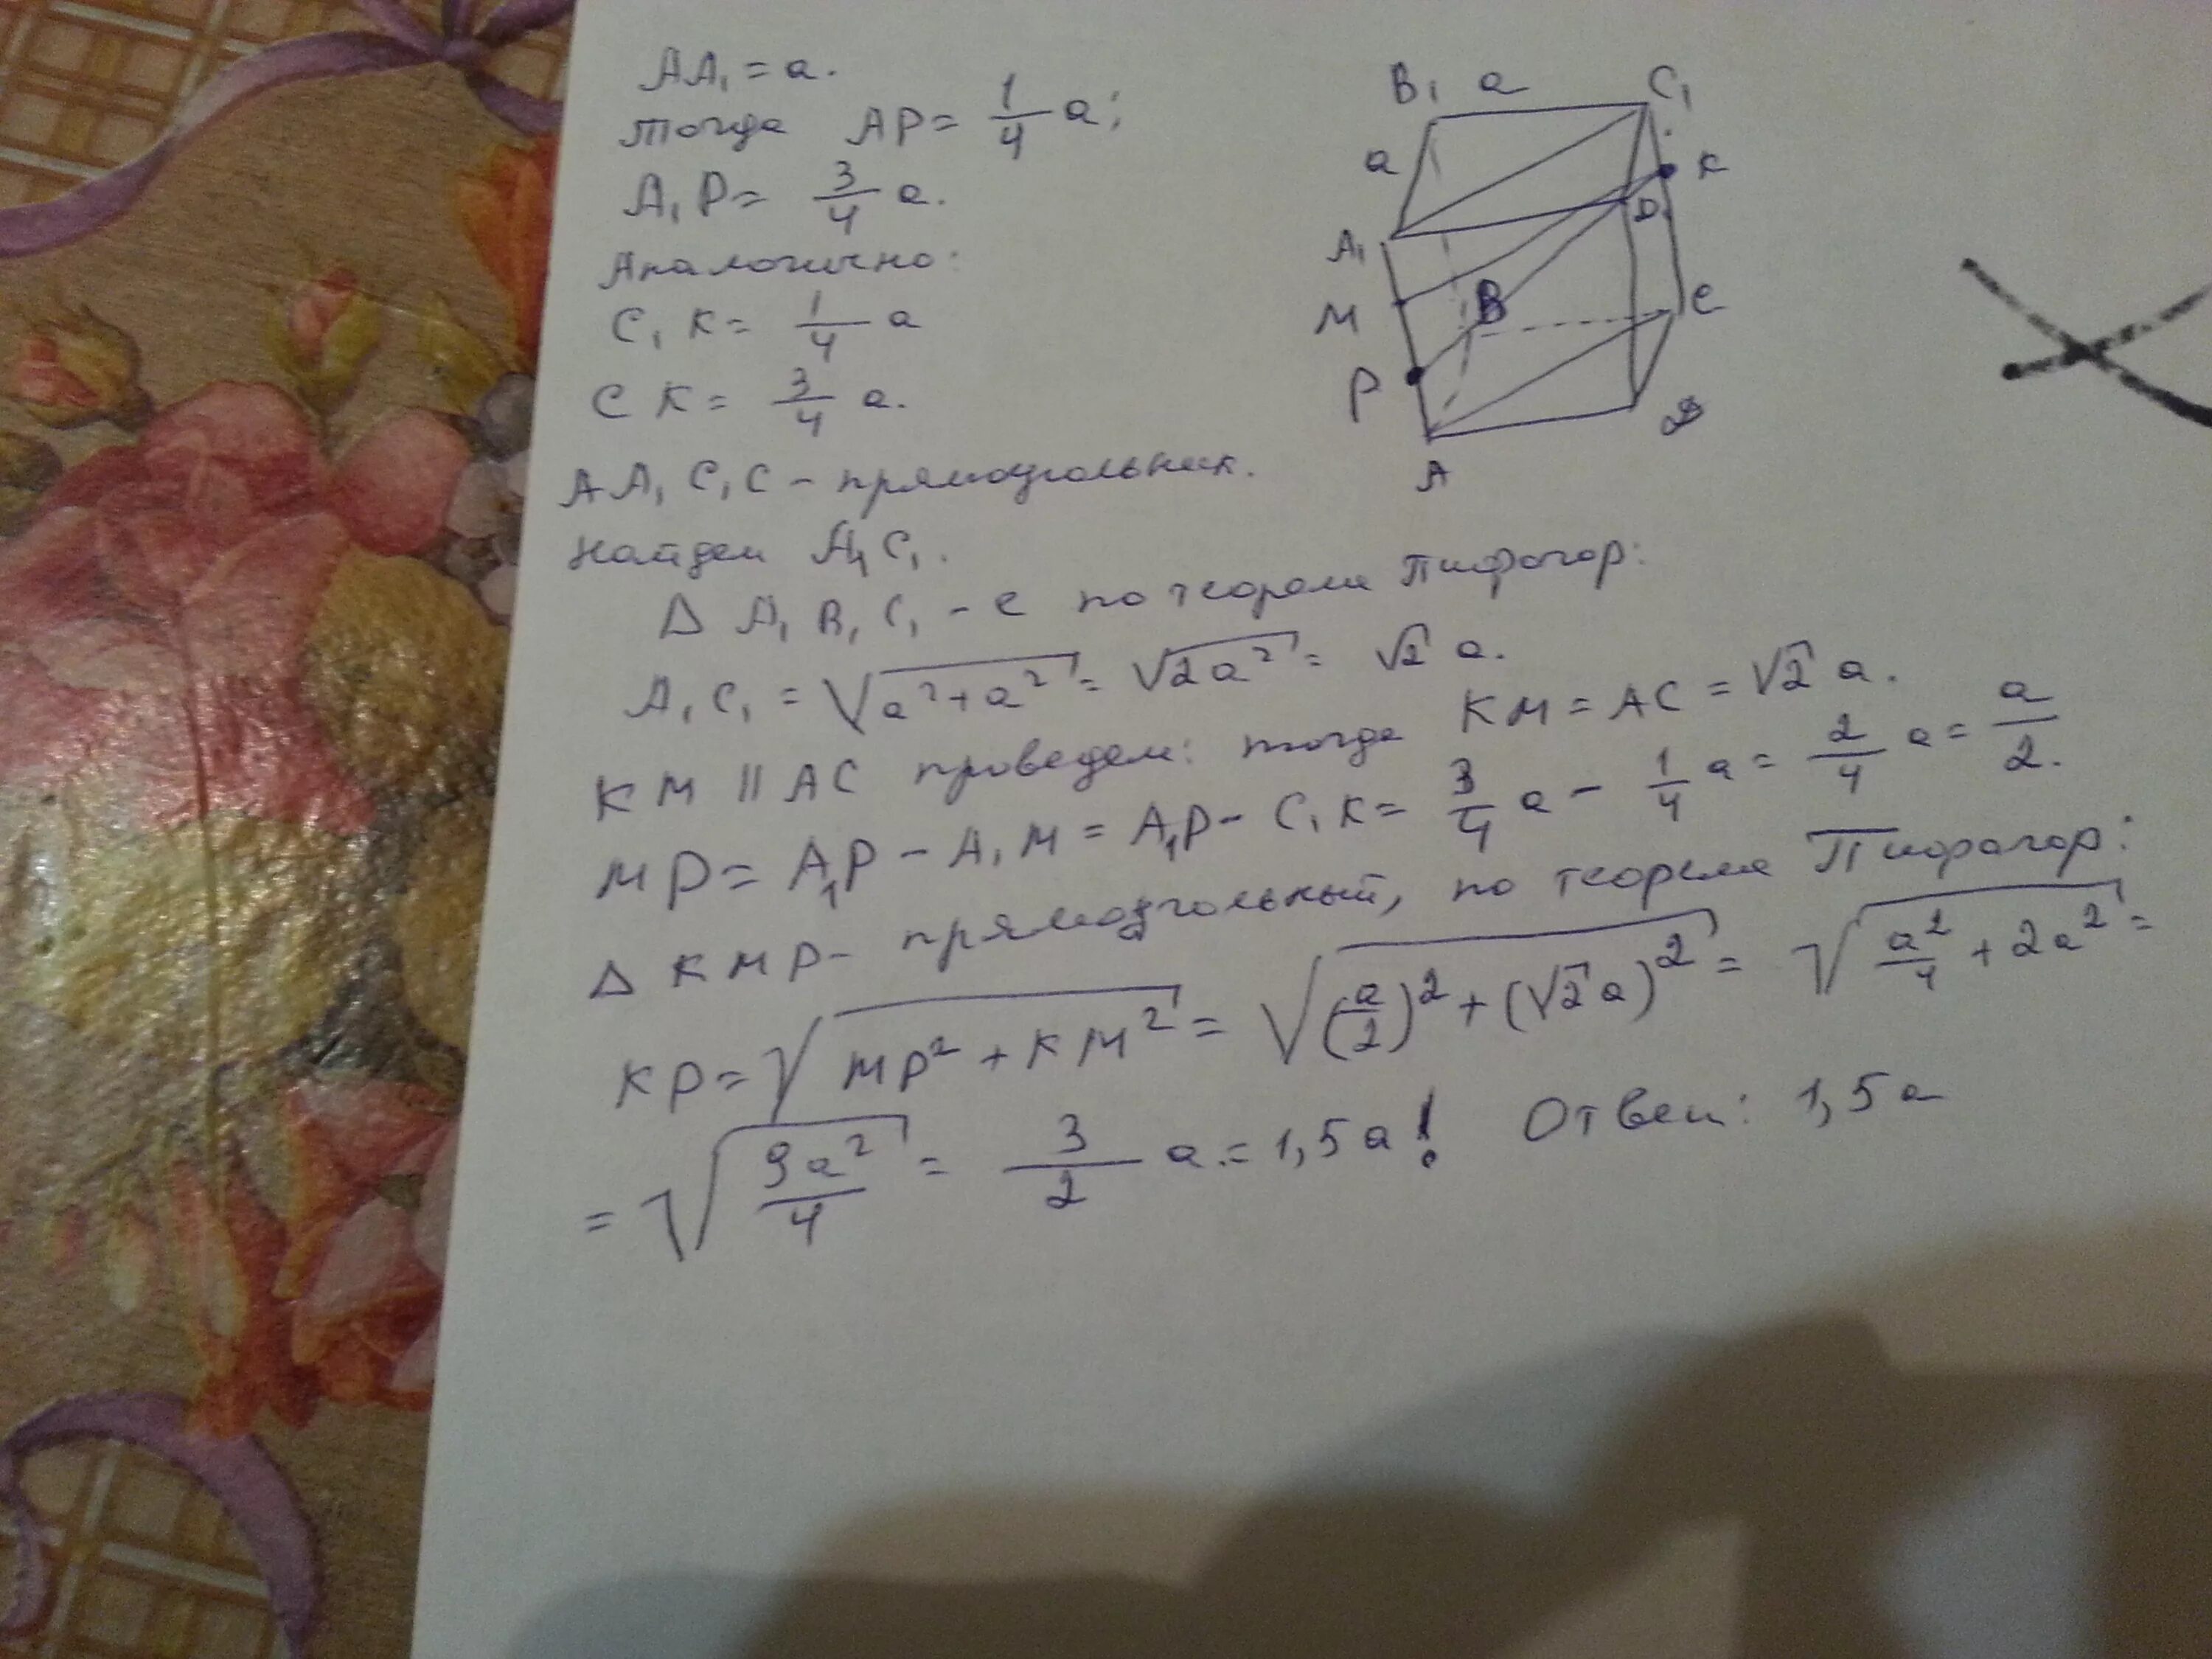 AA₁ = a.
тогда AP = 1/4 a;
A₁P = 3/4 a.
Аналогично:
C₁K = 1/4 a
CK = 3/4 a.
AA₁C₁C - прямоугольник.
Найдем A₁C₁.
Δ A₁B₁C₁ - с по теореме Пифагор:
A₁C₁ = √(a²+a²) = √(2a²) = √2 a.
KM || AC проведем: тогда KM = AC = √2 a.
MP = A₁P - A₁M = A₁P - C₁K = 3/4 a - 1/4 a = 2/4 a = a/2.
Δ KMP - прямоугольный, по теореме Пифагор:
KP = √(MP² + KM²) = √((a/2)² + (√2 a)²) = √(a²/4 + 2a²) =
= √(9a²/4) = 3/2 a. = 1,5a! Ответ: 1,5a
B₁ a C₁
a K
A₁ D₁
M B C
P D
A